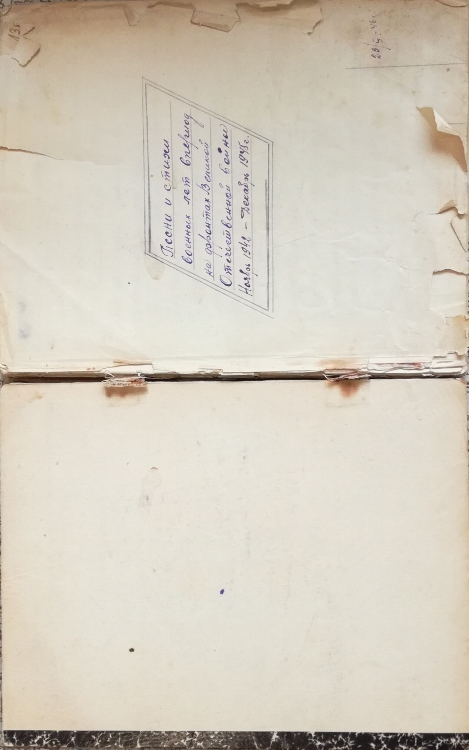 Песни и стихи
военных лет впериод
на фронтах Великой
Отечественной войны
Ноябрь 1942 – Декабрь 1945г.